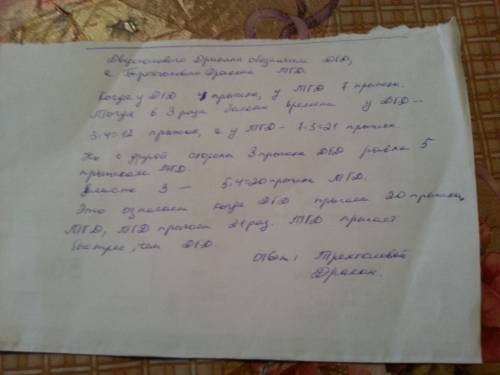 Двухголового Дракона обозначим ДГД,
а Трёхголового Дракона ТГД.
Когда у ДГД 4 прыжка, у ТГД 7 прыжков.
Тогда в 3 раза больше времени у ДГД –
3·4=12 прыжков, а у ТГД – 7·3=21 прыжок.
Но с другой стороны 3 прыжка ДГД равны 5
прыжкам ТГД.
3 — 5·4=20 прыжков ТГД.
Это означает когда ДГД прыгает 20 прыжков
ТГД, ТГД прыгает 21 раз. ТГД прыгает
быстрее, чем ДГД.
Ответ: Трехголовой
Дракон.